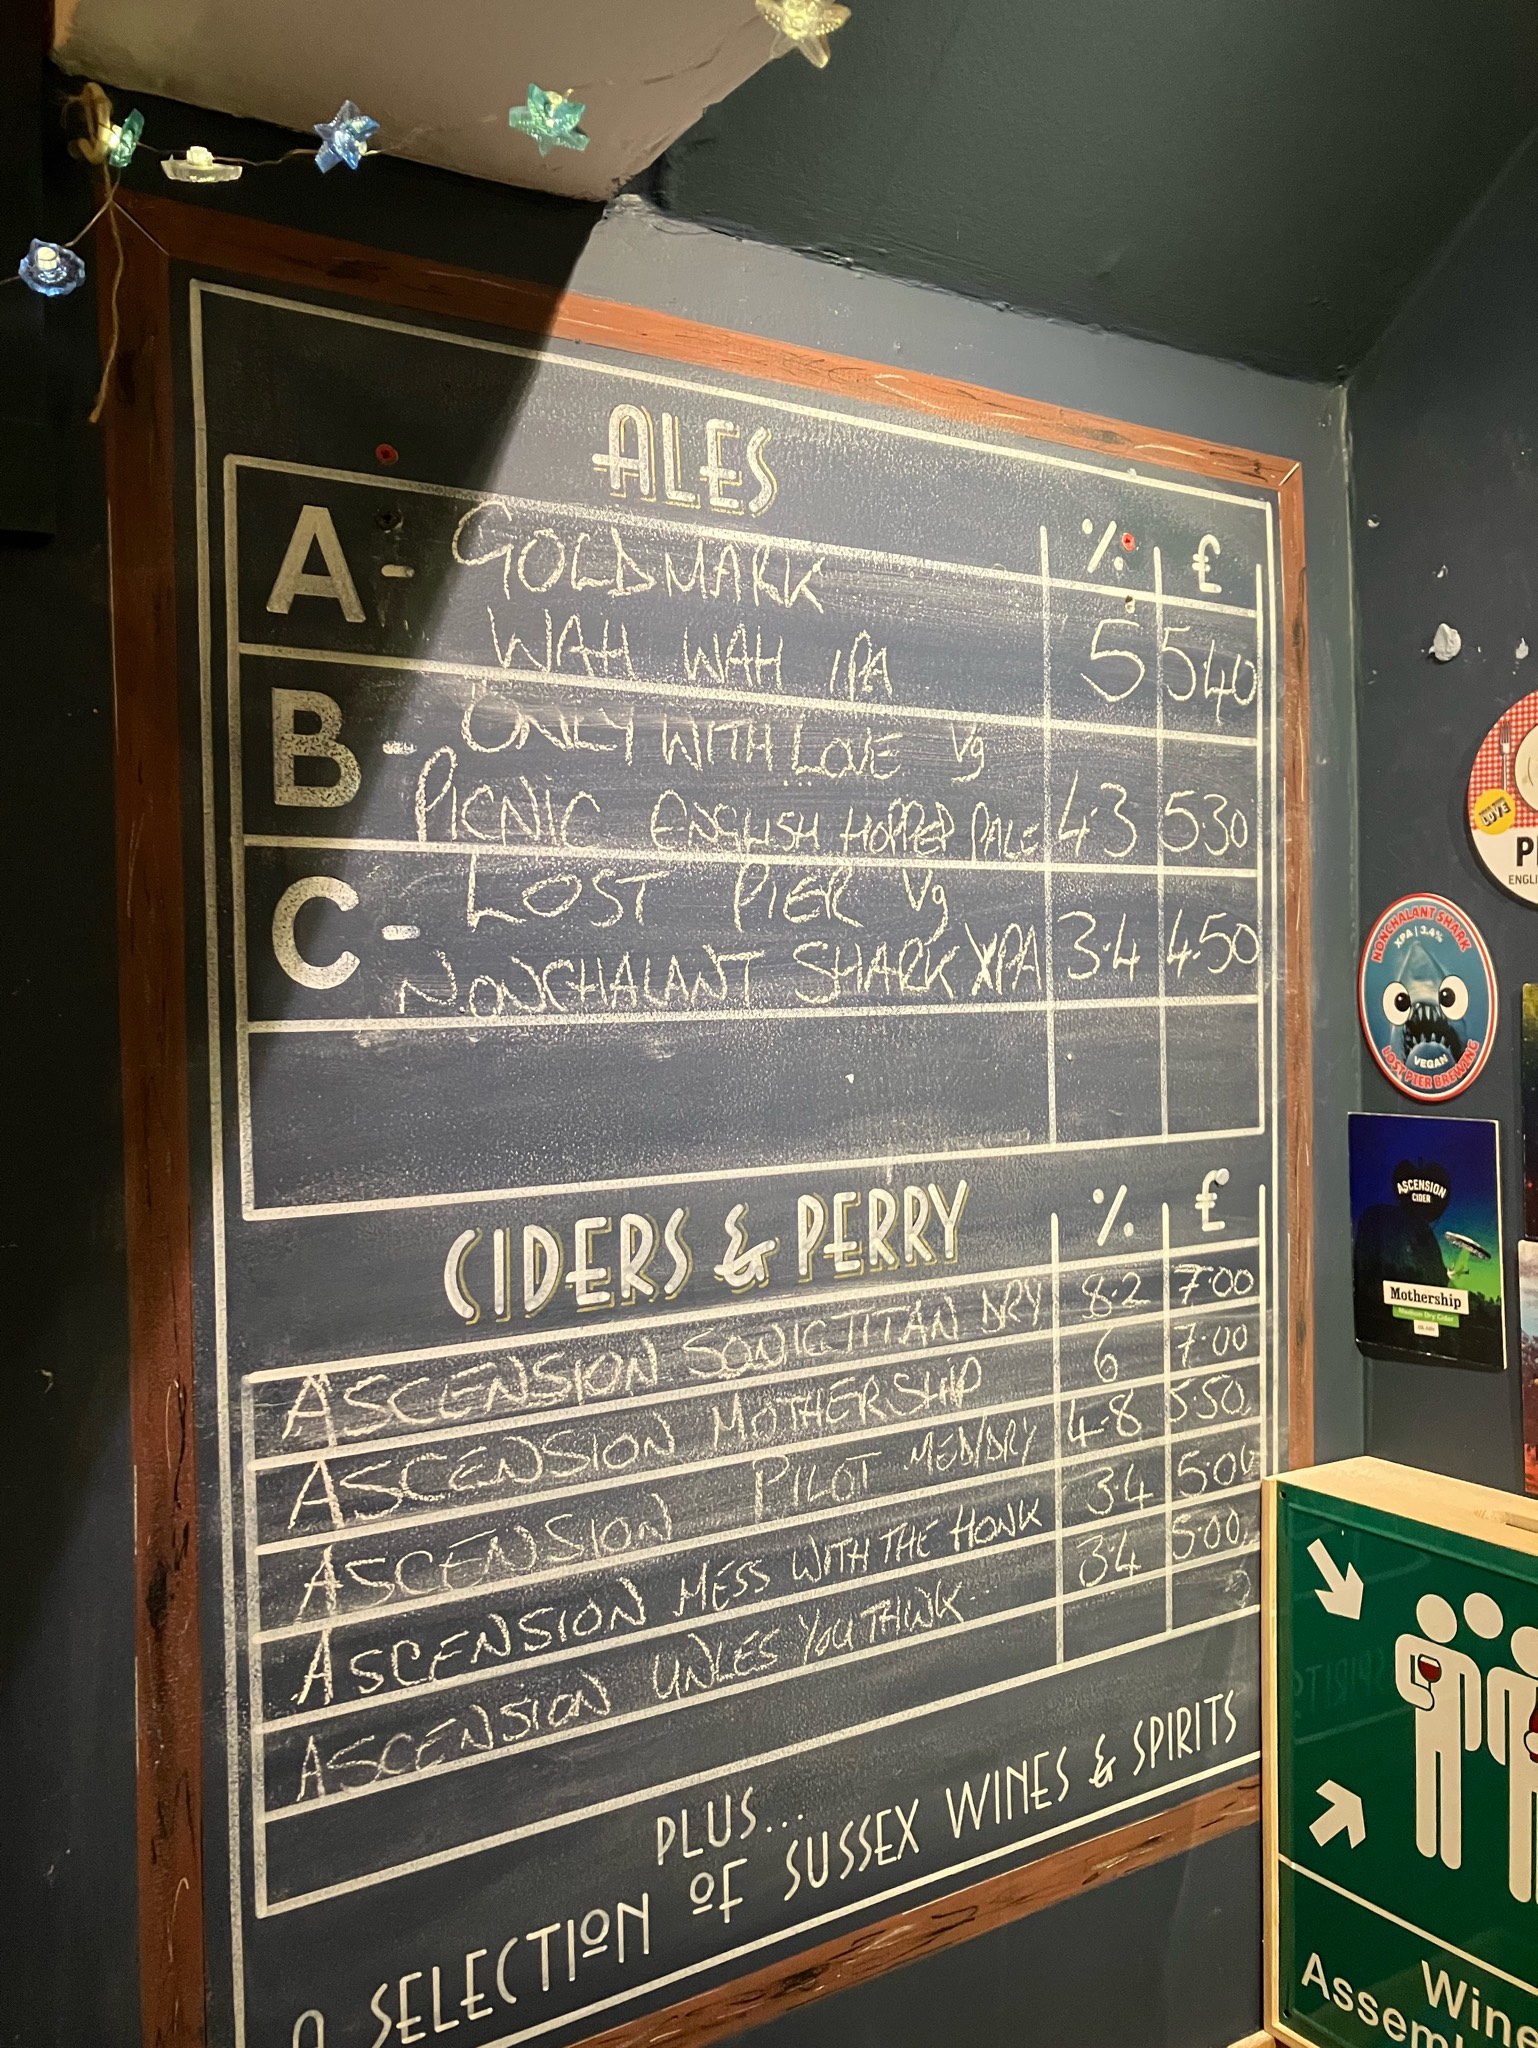 ALES
% £
A - GOLDMARK
WAH WAH IPA 5 5.40
B - ONLY WITH LOVE Vg
PICNIC ENGLISH HOPPED PALE 4.3 5.30
C - LOST PIER Vg
NONCHALANT SHARK XPA 3.4 4.50
CIDERS & PERRY % £
ASCENSION SONIC TITAN DRY 8.2 7.00
ASCENSION MOTHERSHIP 6 7.00
ASCENSION PILOT MED/DRY 4.8 5.50
ASCENSION MESS WITH THE HONK 3.4 5.00
ASCENSION UNLES YOU THINK 3.4 5.00
PLUS...
A SELECTION OF SUSSEX WINES & SPIRITS
LOVE
ENGLI
NONCHALANT SHARK
XPA | 3.4%
VEGAN
LOST PIER BREWING
ASCENSION
CIDER
Mothership
Medium Dry Cider
Wine
Assem